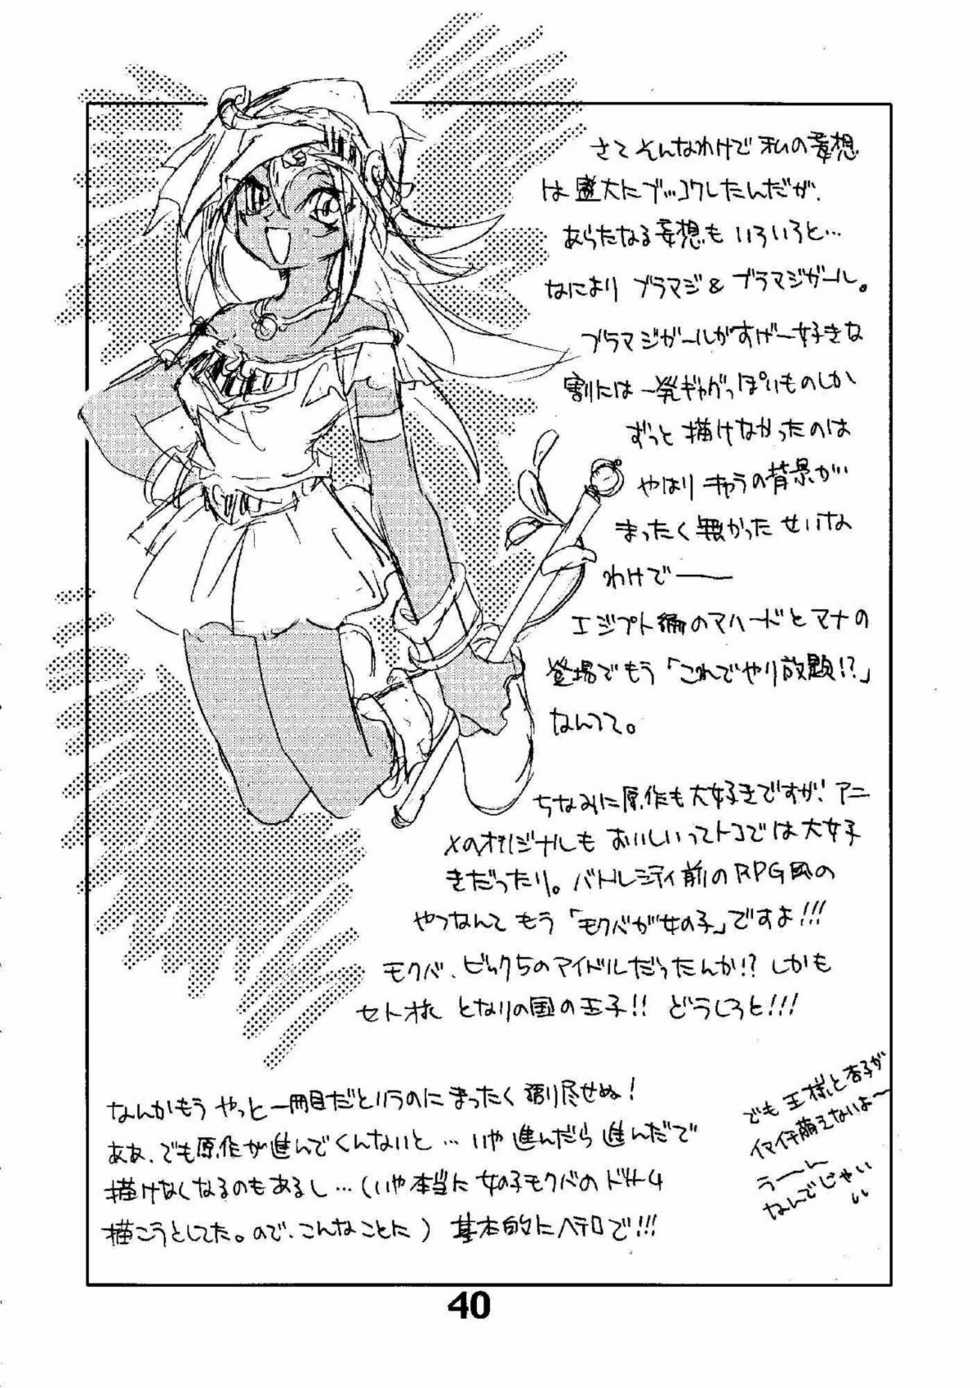 さて そんなわけで 私の妄想
は 盛大にブッコワしたんだが、
あらたなる妄想も いろいろと…
なにより ブラマジ & ブラマジガール。
ブラマジガールがすげー好きな
割には 一発ギャグっぽいものしか
ずっと 描けなかったのは
やはり キャラの背景が
まったく 無かった せいな
わけで――
エジプト編のマハードとマナの
登場でもう「これでやり放題!?」
なんてて。
ちなみに原作も大好きですが、アニ
メのオリジナルも おいしいってトコでは大好
きだったり。バトルシティ前のRPG風の
やつなんて もう「モクバが女の子」ですよ!!!
モクバ、ビック5のアイドルだったんか!? しかも
セト様 となりの国の王子!! どうしろと!!!
なんかもう やっと一冊目だというのに まったく 語り尽せぬ!
ああ、でも原作が進んでくんないと… いや 進んだら 進んだで
描けなくなるのもあるし…(いや本当に 女の子モクバの
描こうとしてた。ので、こんなことに) 基本的にヘテロで!!!
でも 王様と杏子が
イマイチ萌えないよ〜
う〜〜ん
なんでじゃい
40